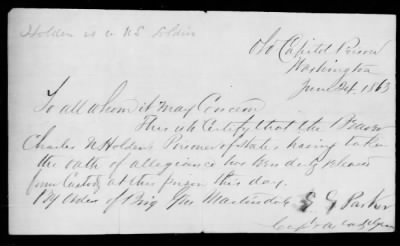 Holden is a US Soldier
Old Capitol Prison
Washington
June 24. 1863
To all whom it may Concern
This is to Certify that the Bearer
Charles N Holden Prisoner of State having taken
the oath of allegiance has been duly released
from Custody at this prison this day.
By Order of Brig Gen Martindale G Parker
Capt